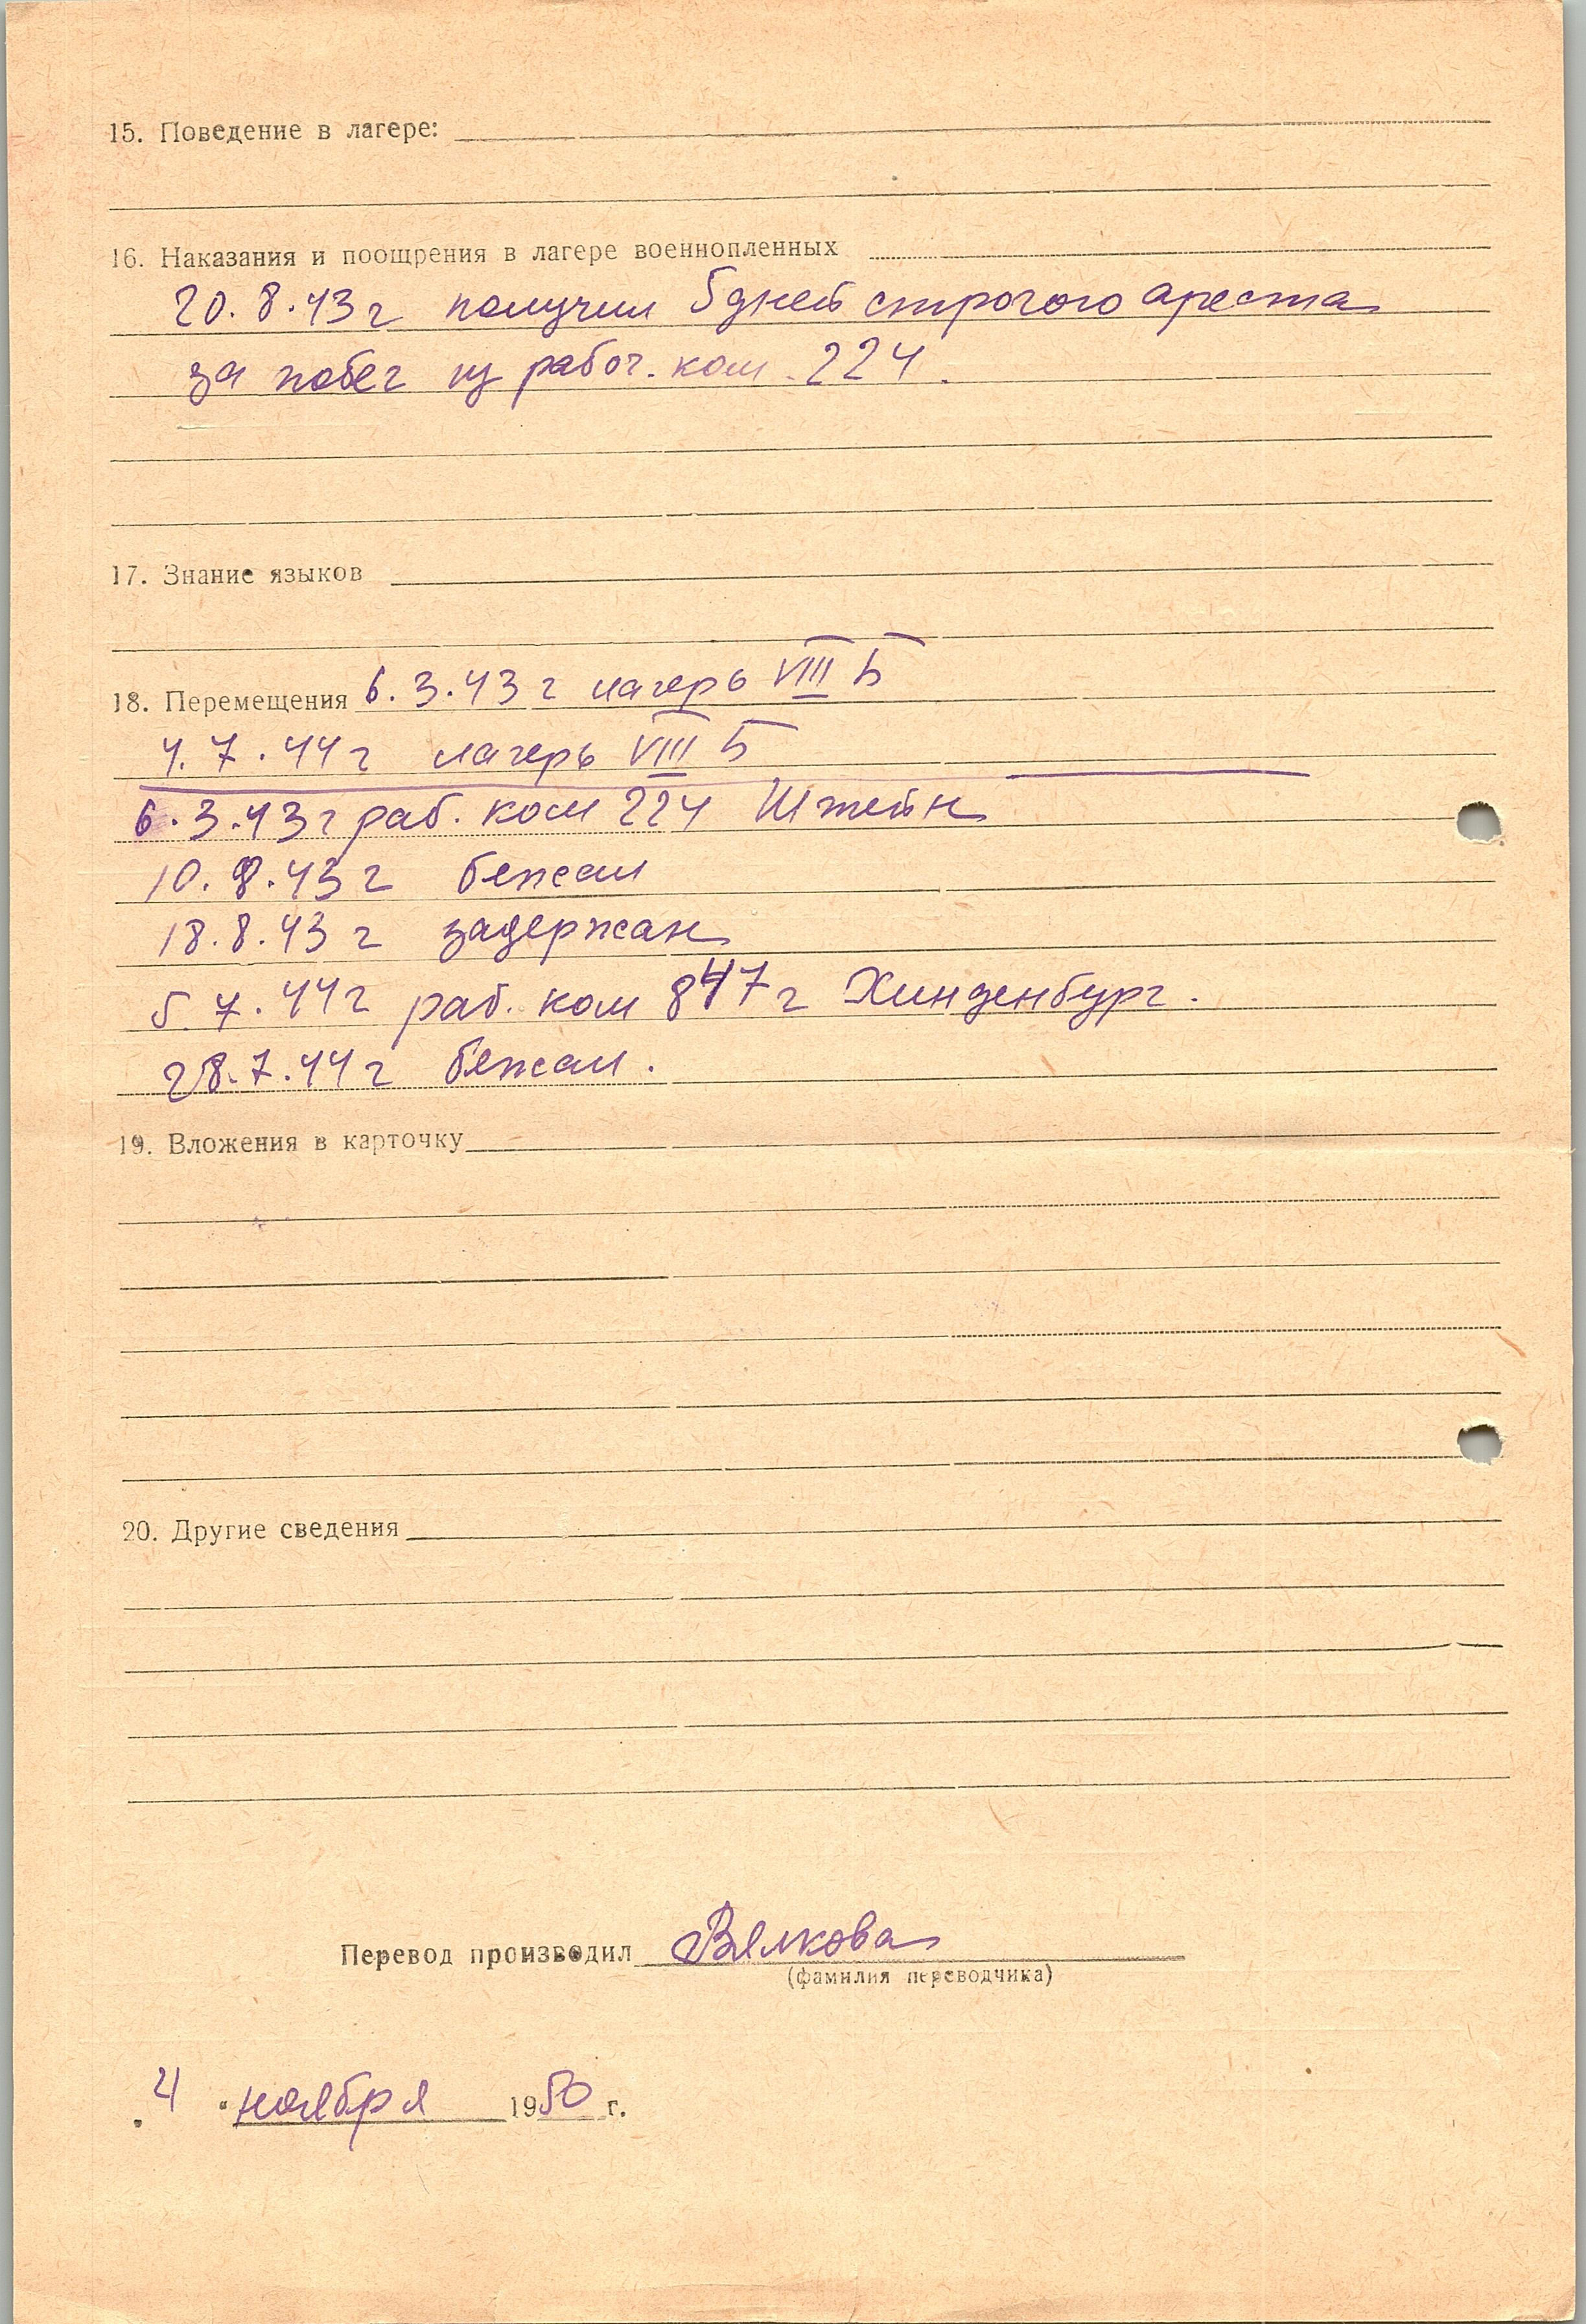 15. Поведение в лагере:
16. Наказания и поощрения в лагере военнопленных
20.8.43 г получил 5 дней строгого ареста
за побег из рабоч. ком. 224.
17. Знание языков
18. Перемещения 6.3.43 г лагерь VIII Б
4.7.44 г лагерь VIII Б
6.3.43 г раб. ком 224 Штейн
10.8.43 г бежал
18.8.43 г задержан
5.7.44 г раб. ком 847 г Хинденбург.
28.7.44 г бежал.
19. Вложения в карточку
20. Другие сведения
Перевод производил Вялкова
(фамилия переводчика)
„4" ноября 1950 г.